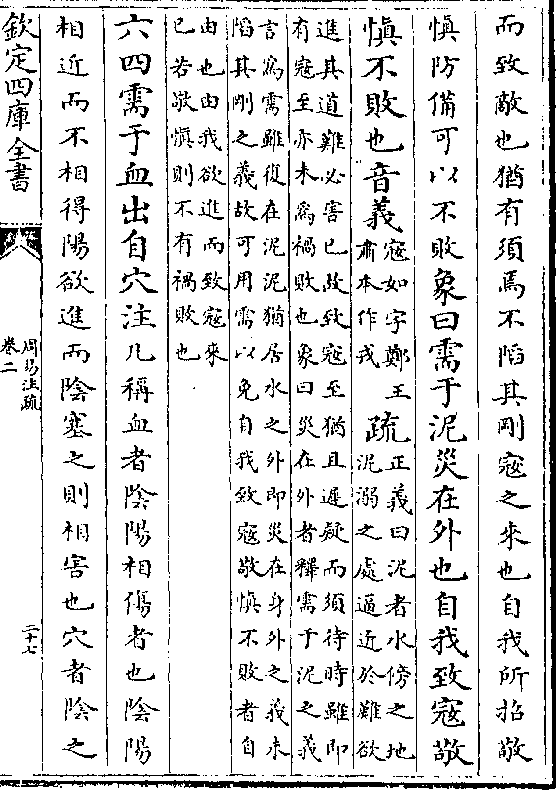 而致敵也猶有須焉不陷其剛寇之來也自我所招敬
慎防備可以不敗象曰需于泥災在外也自我致寇敬
慎不敗也音義寇如字鄭王
肅本作戎
疏正義曰泥者水傍之地
泥溺之處逼近於難欲
進其道難必害已故致寇至猶且遲疑而須待時雖即
有寇至亦未為禍敗也象曰災在外者釋需于泥之義
言為需雖復在泥泥猶居水之外即災在身外之義未
陷其剛之義故可用需以免自我致寇敬慎不敗者自
由也由我欲進而致寇來
已若敬慎則不有禍敗也
六四需于血出自穴注凡稱血者陰陽相傷者也陰陽
相近而不相得陽欲進而陰塞之則相害也穴者陰之
欽定四庫全書
周易注疏
卷二
二十七